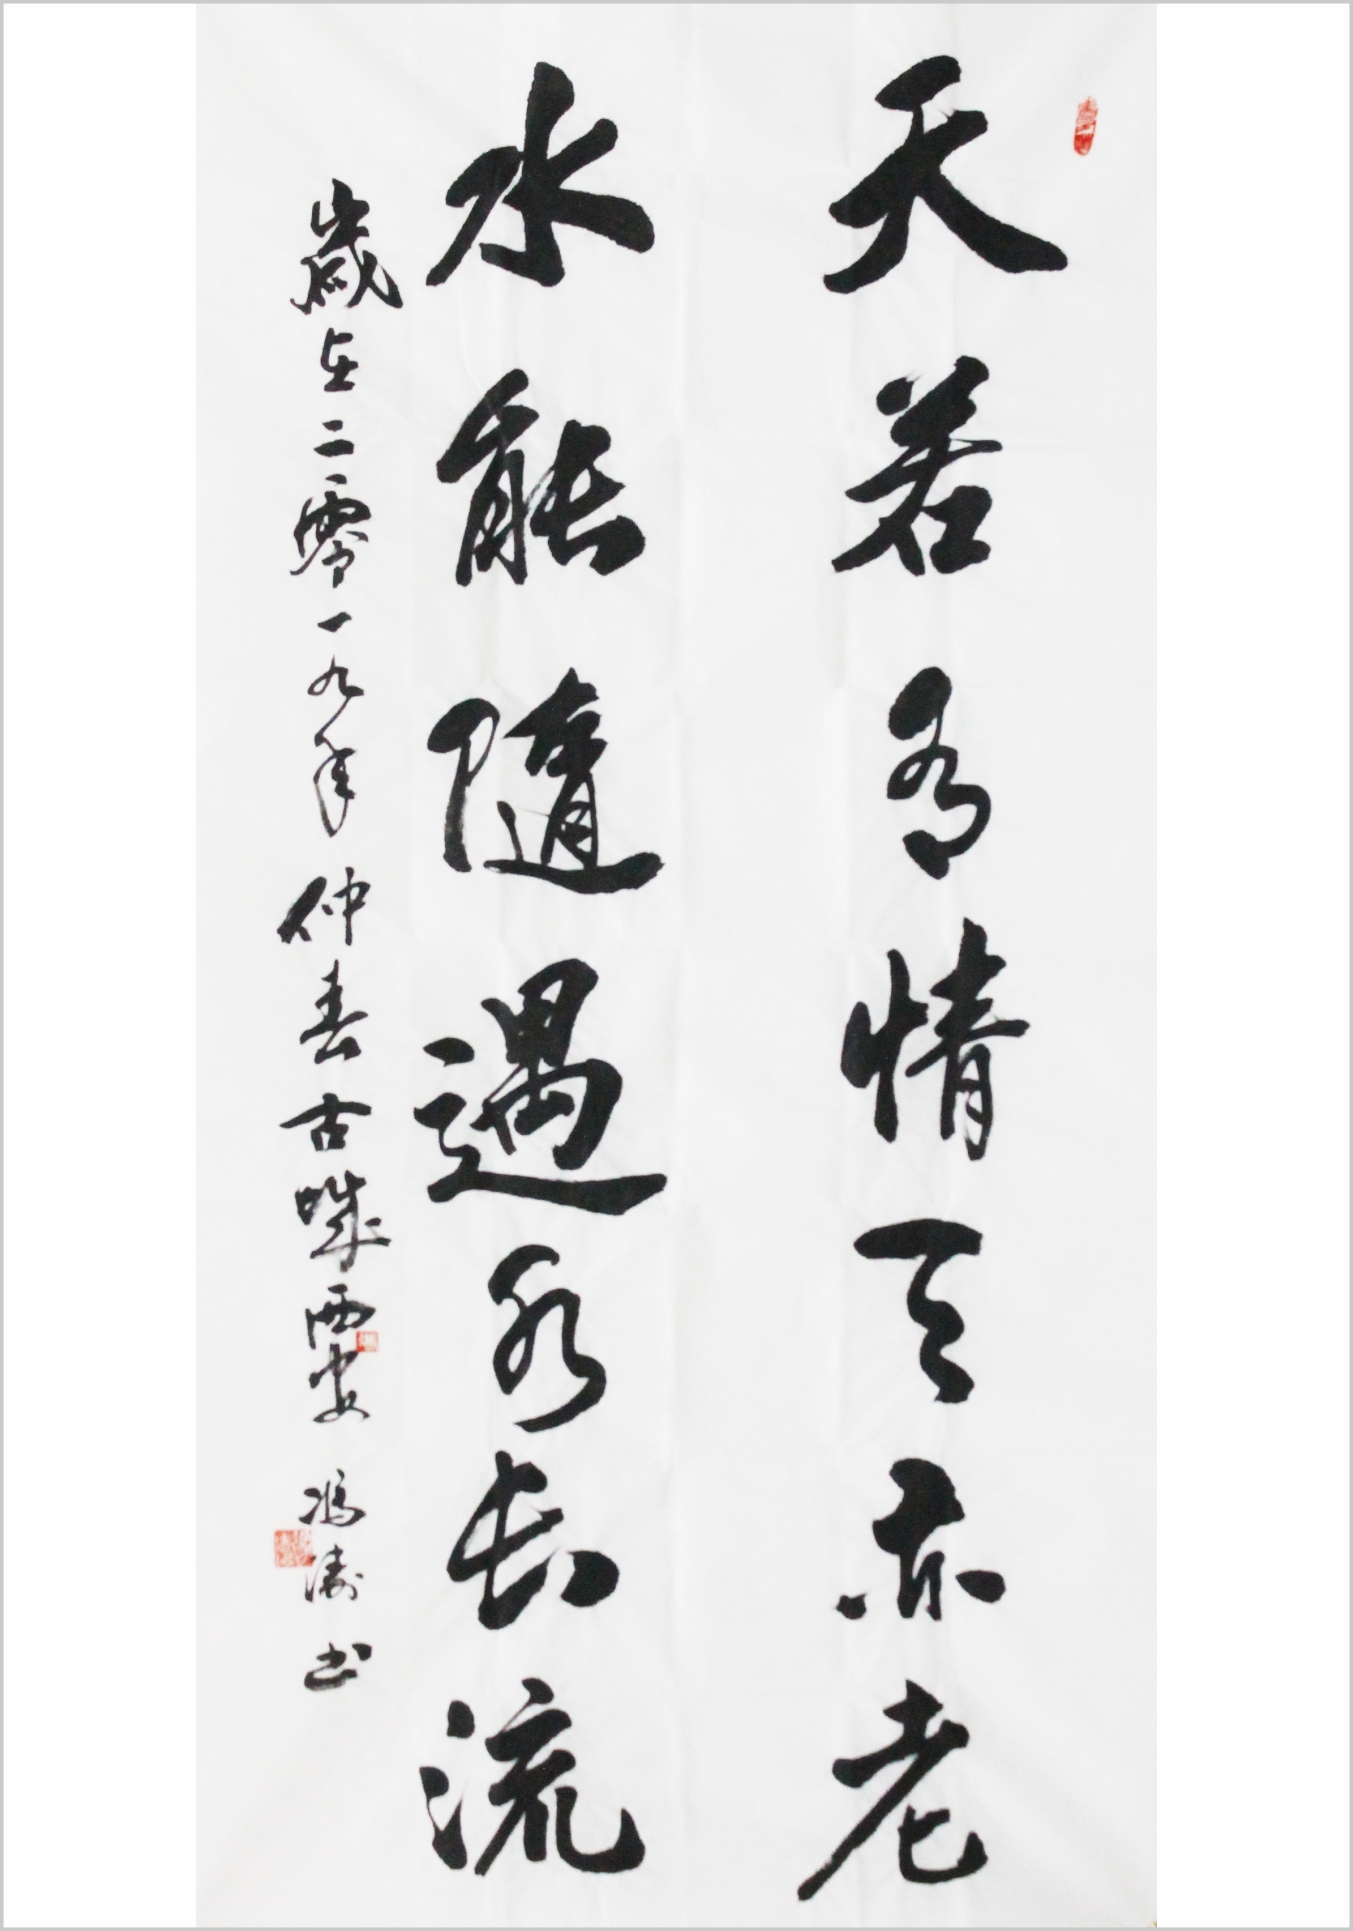 天若有情天亦老
水能随遇永长流
歲在二零一九年仲春古城西安冯涛书